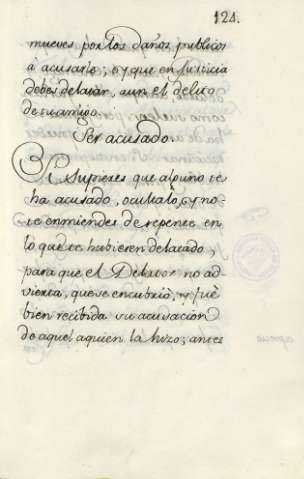 124.
mueves por los daños publicos
à acusarlo; y que en Justicia
debes delatar, aun el delito
de tu amigo.
Ser acusado.
Si Supieres que alguno te
ha acusado, ocultalo, y no
te enmiendes de repente en
lo que te hubieren delatado,
para que el Delator no ad-
vierta, que se encubrió, y fuè
bien recibida su acusacion
de aquel aquien la hizo; antes